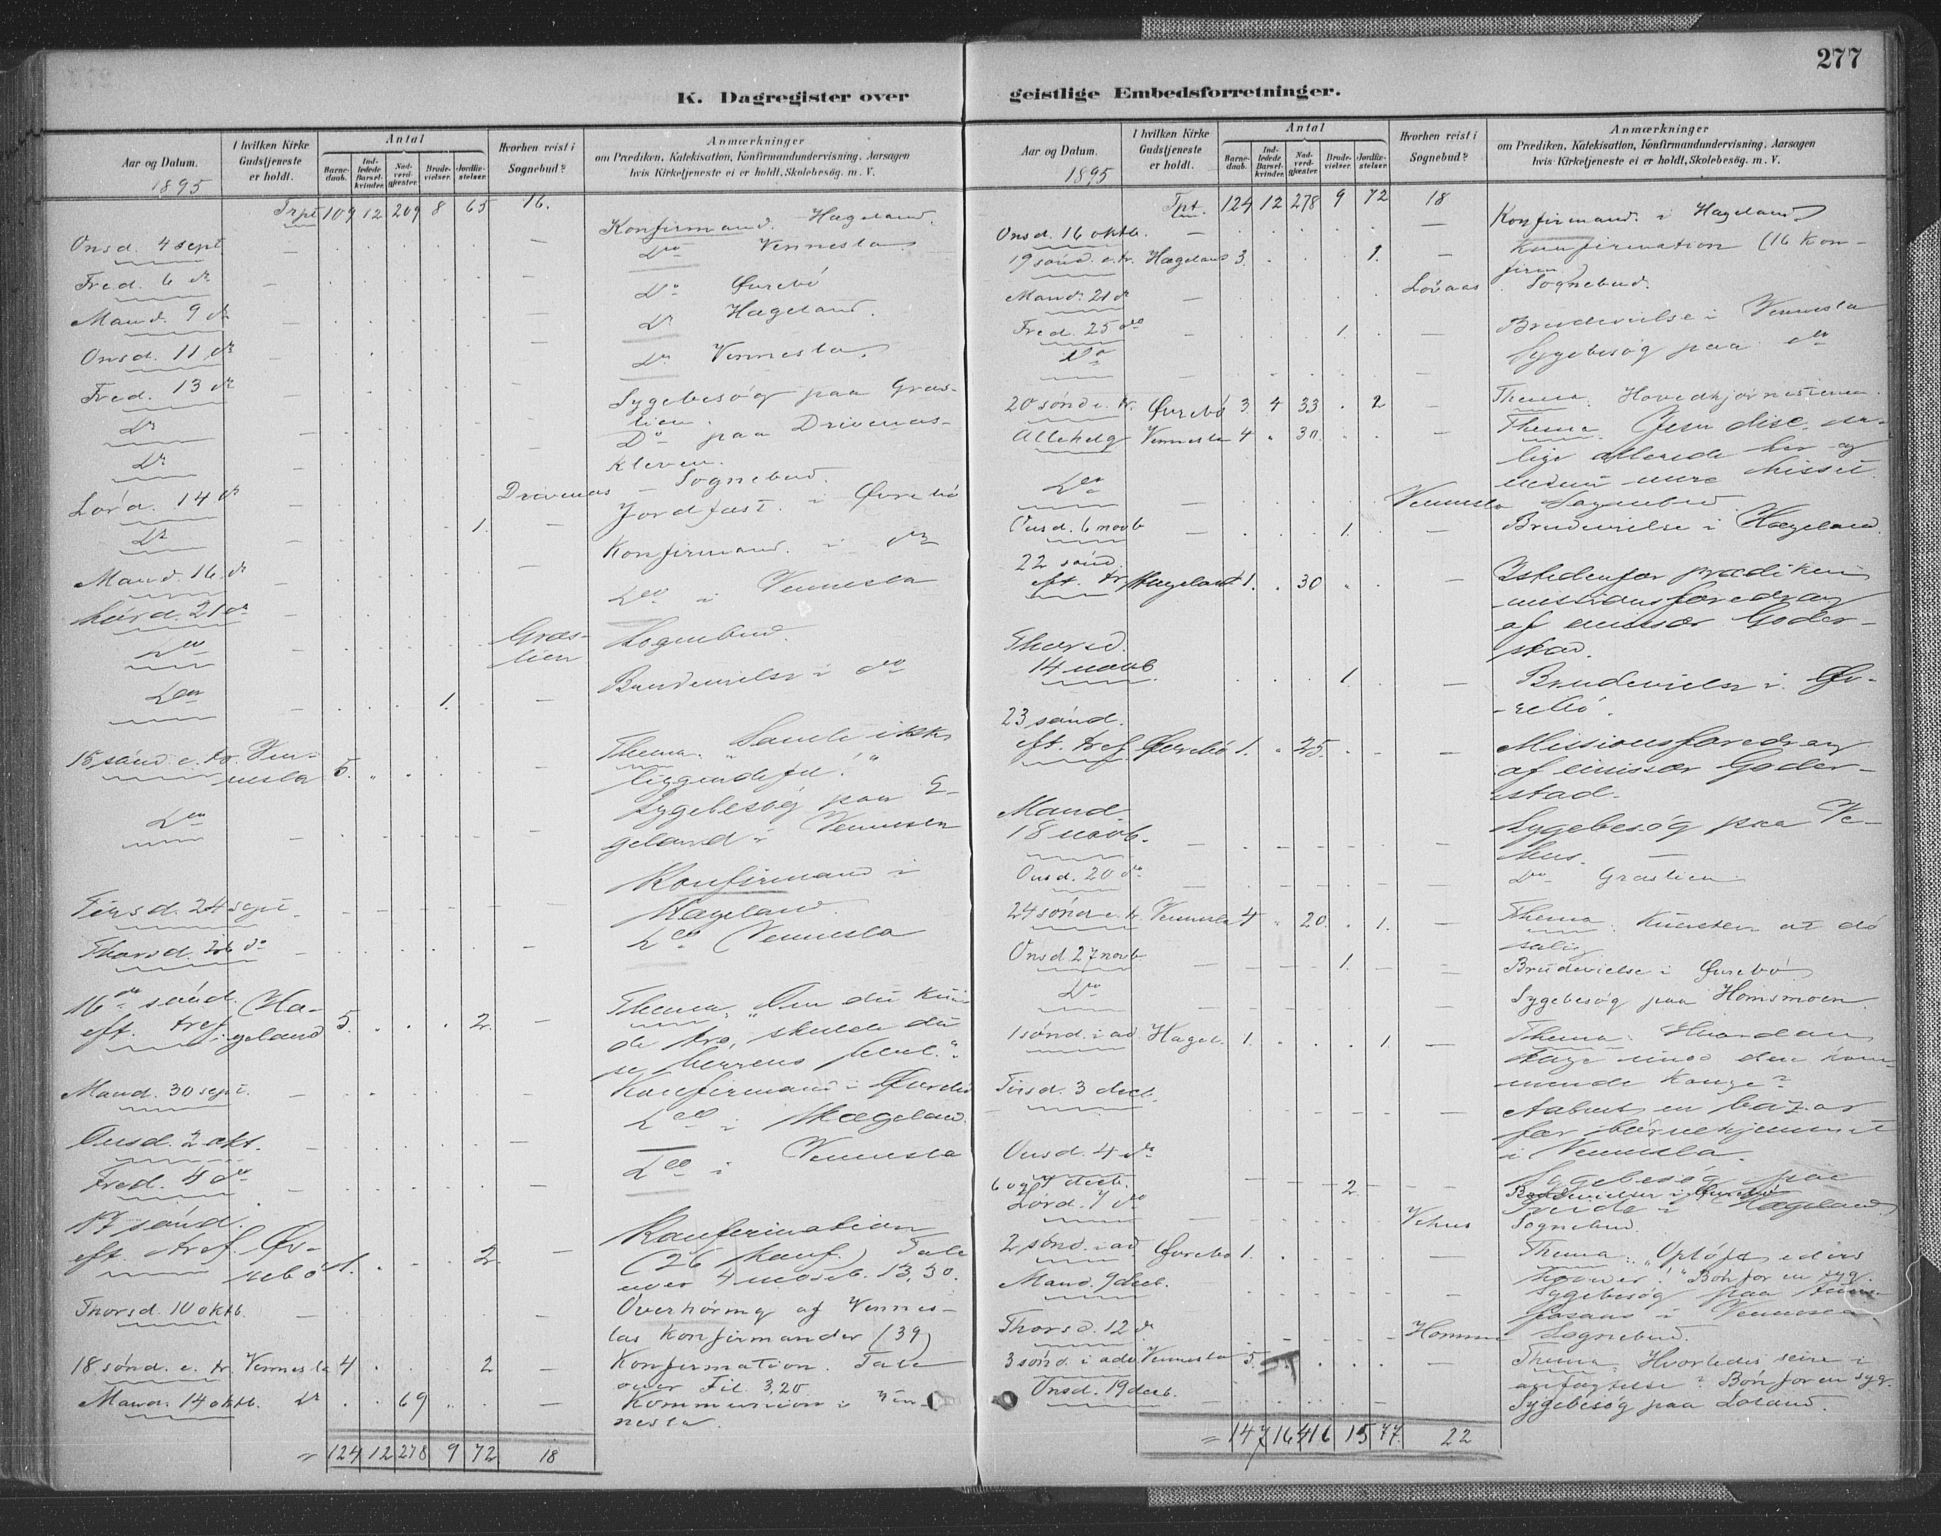 277
K. Dagregister over
Aar og Datum.
1895
I hvilken Kirke Gudstjeneste er holdt.
Antal
Barnedaab.
Indledede Barselkvinder.
Nadverdgjæster.
Brudevielser.
Jordfæstelser.
Hvorhen reist i Sognebud?
Anmærkninger
om Prædiken, Katekisation, Konfirmandundervisning, Aarsagen
hvis Kirketjeneste ei er holdt, Skolebesøg. m. V.
Trpt 109 12 209 8 65 16.
Onsd. 4 sept — — Konfirmand. Hægeland.
Fred. 6 do — — Do Vennesla
Mand. 9 do — — Do Øvrebö
Onsd. 11 do — — Do Hægeland.
Fred. 13 do — — Do Vennesla.
Do — — Sygebesøg paa Gras-
lien.
Do — — Do paa Drivenas-
kleven.
Lörd. 14 do — Drivenas — Sognebud.
Do — 1. — Jordfæst. i Øvrebö
Mand. 16 do — — Konfirmand. i do
Lørd. 21 do — — Do i Vennesla
Do — Gras-
lien Sognebud.
Do — 1. — Brudevielse i do
15 sönd. e. tr. Ven-
nesla 5. — Thema: "Samle ikke
liggendefæ!"
Do — — Sygebesög paa E-
geland i Vennesla
Tirsd. 24 sept. — — Konfirmand i
Hægeland.
Thorsd. 26 do — — Do Vennesla
16de sönd.
eft. tref. Hæ-
geland 5. 2. — Thema: "Om du kun-
de tro, skulde du
se Herrens herl."
Mand. 30 sept. — — Konfirmand i Øvrebö
Onsd. 2 okt. — — Do i Hægeland.
Fred. 4 do — — Do i Vennesla
17 sönd.
eft. tref. Øv-
rebö 1. 2. — Konfirmation
(26 konf.) Tale
over 4 moseb. 13,30.
Thorsd. 10 oktb. — — Overhöring af Vennes-
las Konfirmander (39)
18 sönd. e. tr. Vennesla 4 2 — Konfirmation. Tale
over Fil. 3,20.
Mand. 14 oktb. Do 69 — Kommunion i Ven-
nesla.
= 124 12 278 9 72 18
geistlige Embedsforretninger.
Aar og Datum.
1895
I hvilken Kirke Gudstjeneste er holdt.
Antal
Barnedaab.
Indledede Barselkvinder.
Nadverdgjæster.
Brudevielser.
Jordfæstelser.
Hvorhen reist i Sognebud?
Anmærkninger
om Prædiken, Katekisation, Konfirmandundervisning, Aarsagen
hvis Kirketjeneste ei er holdt, Skolebesøg. m. V.
Tpt. 124 12 278 9 72 18
Onsd. 16 oktb. — — Konfirmand. i Hægeland
19 sönd. e. tr. Hægeland 3. 1. — Konfirmation (16 Kon-
firm)
Mand. 21 do — Lovaas. Sognebud.
Fred. 25 do — 1. — Brudevielse i Vennesla
Do — Sygebesög paa do
20 sönd e. tr. Øvrebö 3. 4 33 2 — Thema: Hovedhjörnestenen.
Allehelg Vennesla 4 30. Thema: Jesu disc. sa-
lige allerede her og
endnu mere hisset
Do — Vennesla Sognebud
Onsd. 6 novb — 1. — Brudevielse i Hægeland.
22 sönd.
eft. tr. Hægeland 1. 30 — Istedenfor prædiken
missionsforedrag
af emissær Goder-
stad.
Thorsd.
14 novb. 1. — Brudevielse i Øv-
rebö.
23 sönd.
eft. tref. Øvrebö 1. 25. — Missionsforedrag
af emissær Goder-
stad.
Mand.
18 novb. — — Sygebesøg paa Ve-
hus. —
Onsd. 20 do — — Do Graslien
24 sönd e. tr. Vennesla 4 20. 1. — Thema: Kunsten at dö
salig
Onsd. 27 novb — 1. — Brudevielse i Øvrebö
Do — — Sygebesög paa Homsmoen
1 sønd. i ad. Hægel. 1. 1. — Thema: Hvordan
tage mod den kom-
mende Konge?
Tirsd. 3 decb. — Aabnet en bazar
for børnehjemmet
i Vennesla.
Onsd. 4 do — Sygebesøg paa
i Hægeland.
6 og 7 decb. 2. Brudevielser i Øvrebö
Lörd. 7 do — Vehus Sognebud.
2 sønd. i ad Øvrebö 1. — Thema: "Opløft eders
hoveder!" Bön for en syg.
Mand. 9 decb. — Sygebesög paa
i Vennesla
Thorsd. 12 do — Homme Sognebud.
3 sönd. i adv Vennesla 5. — Thema: Hvorledes seire i
anfægtelse? Bön for en syg.
Onsd. 19 decb. — Sygebesög paa Loland.
= 147 16 416 15 77. 22